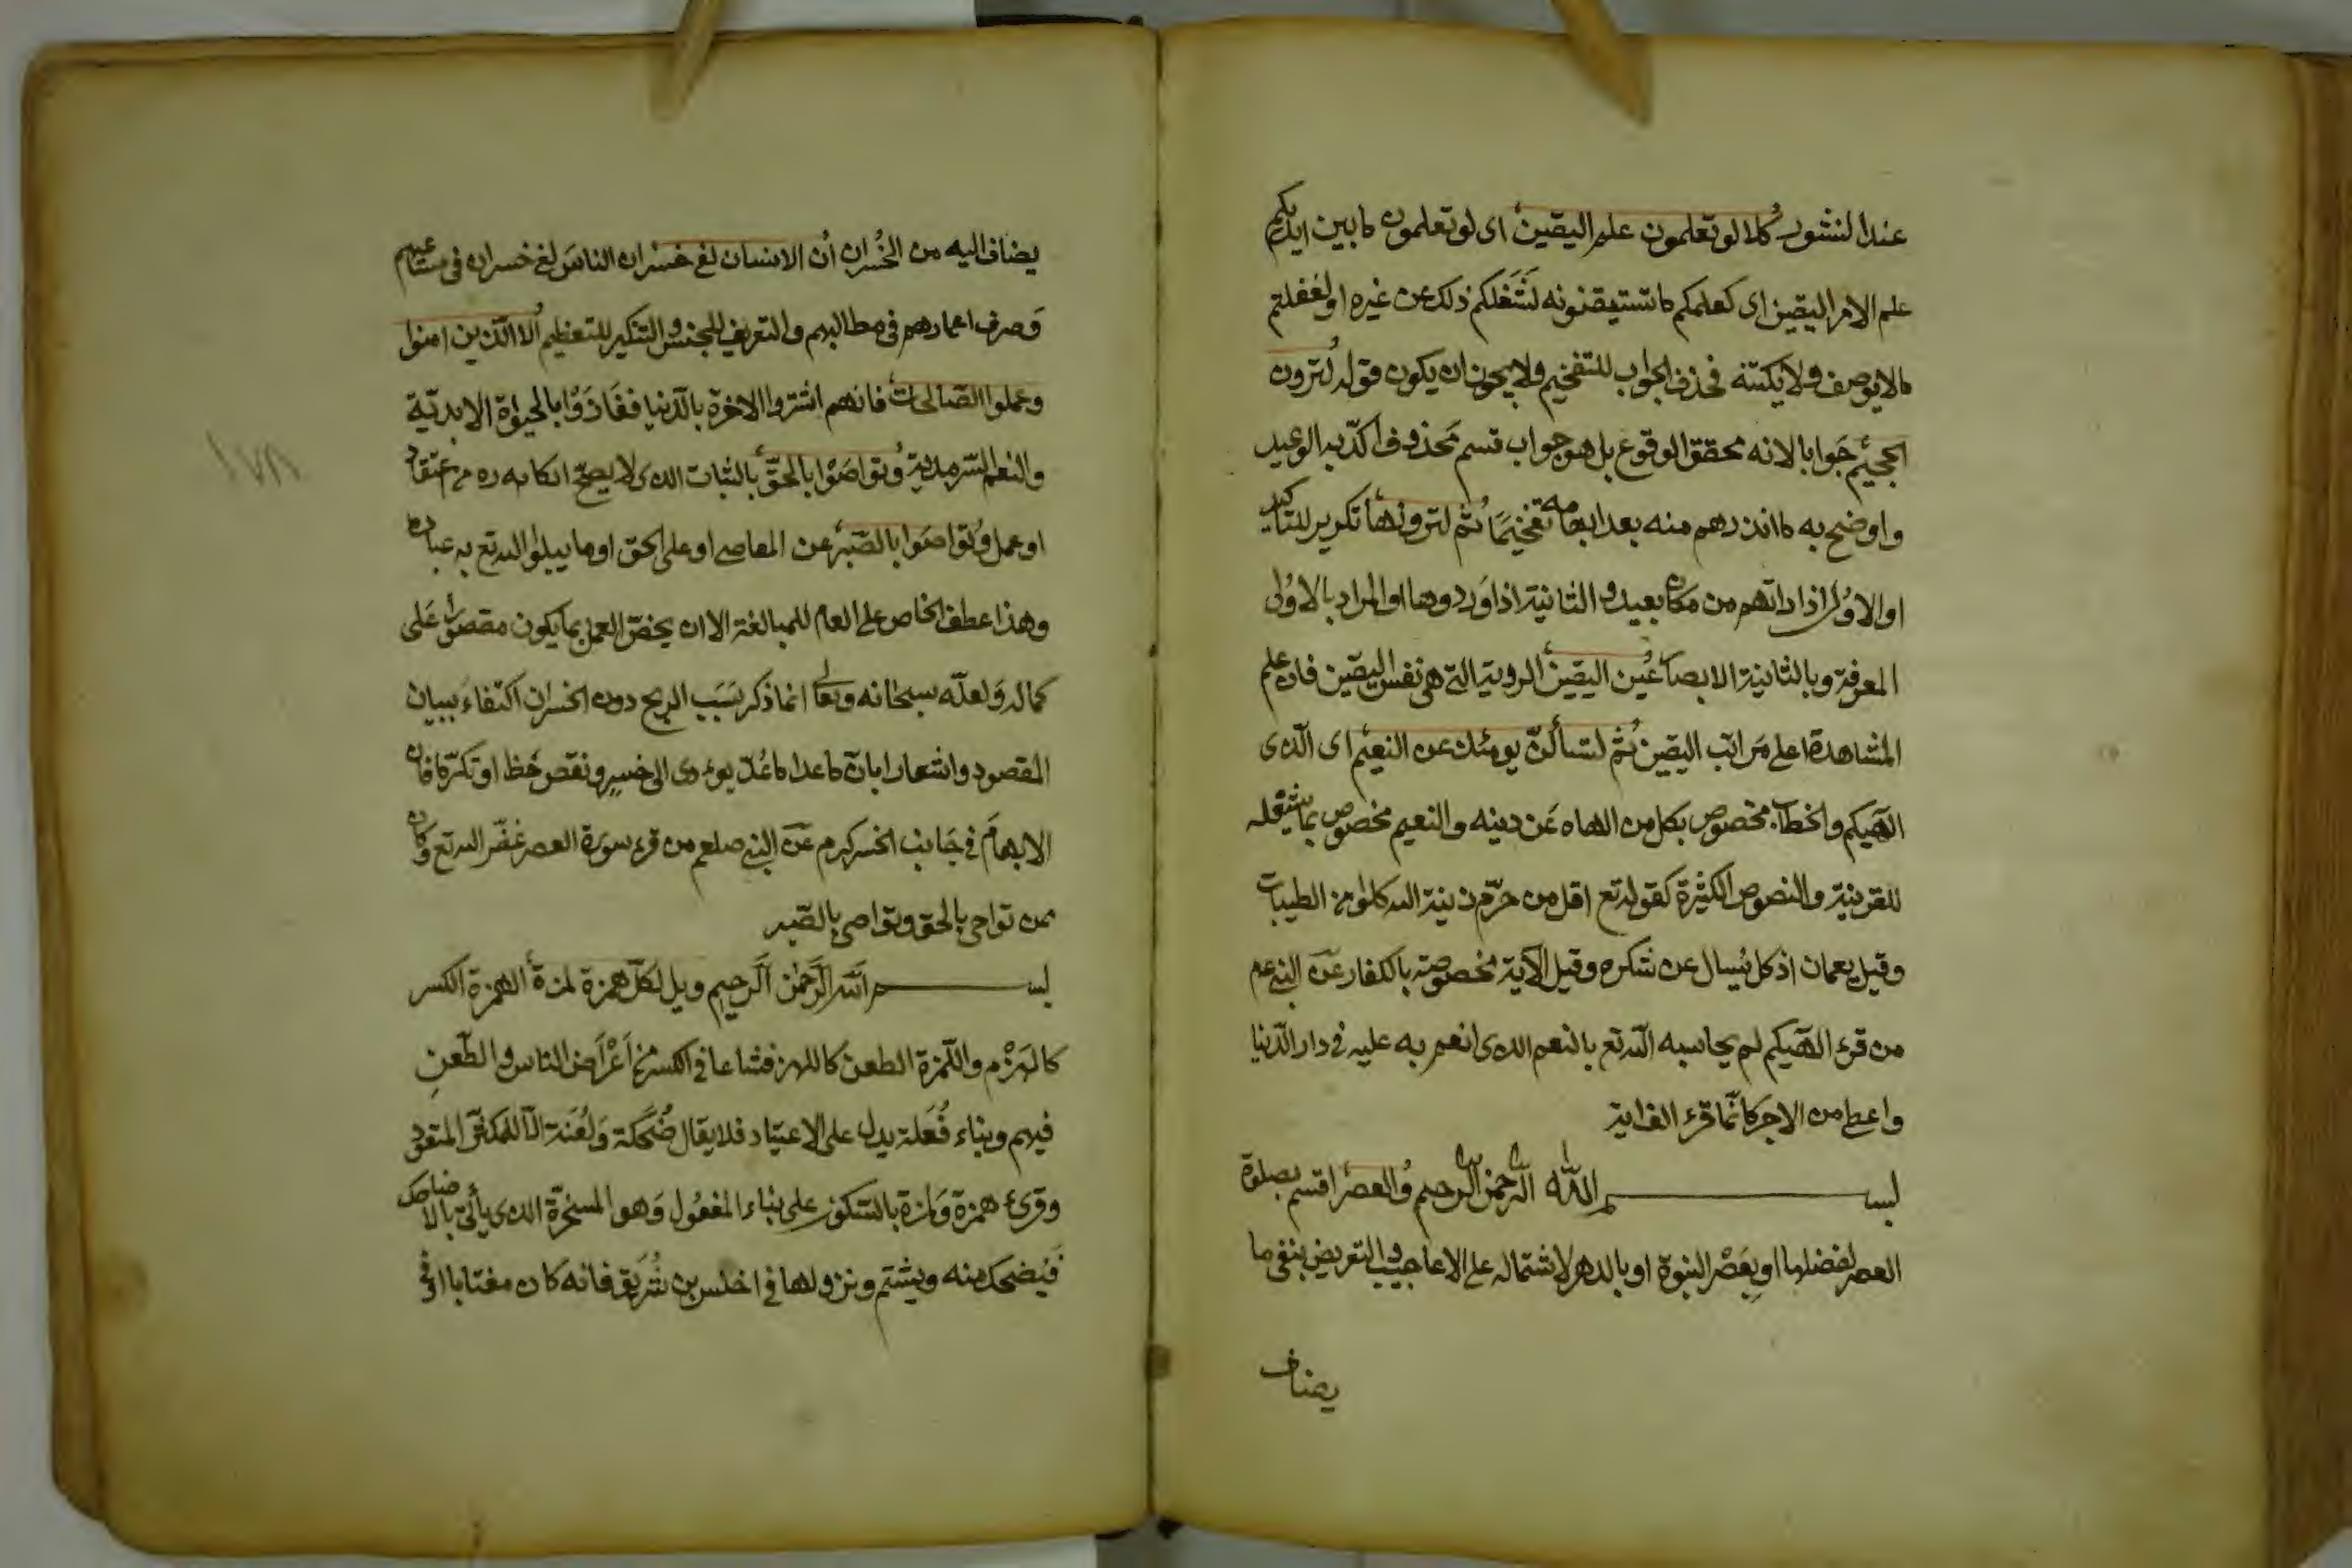 عند النشور كلا لو تعلمون علم اليقين اى لو تعلمون ما بين ايديكم
علم الامر اليقين اى كعلمكم ما تستيقنونه لشغلكم ذلك عن غيره او لفعلتم
مالا يوصف ولا يكتنه فحذف الجواب للتفخيم ولا يجوز ان يكون قوله لترون
الجحيم جوابا لانه محقق الوقوع بل هو جواب قسم محذوف اكد به الوعيد
واوضح به ما انذرهم منه بعد ابهامه تفخيما ثم لترونها تكرير للتاكيد
او الاولى اذا راتهم من مكان بعيد والثانية اذا اوردوها او المراد بالاولى
المعرفة وبالثانية الابصار عين اليقين الروية التى هى نفس اليقين فان علم
المشاهدة اعلى مراتب اليقين ثم لتسألن يومئذ عن النعيم اى الذى
الهيكم والخطاب مخصوص بكل من الهاه عن دينه والنعيم مخصوص بما يشغله
للقرينة والنصوص الكثيرة كقوله تع اقل من حرم زينة الله كلوا من الطيبات
وقيل يعمان اذ كل يسال عن شكره وقيل الآية مخصوصة بالكفار عن النبى عم
من قرء الهيكم لم يحاسبه الله تع بالنعم الذى انعم به عليه فى دار الدنيا
واعطى من الاجر كانما قرء الف اية
بسم الله الرحمن الرحيم والعصر اقسم بصلوة
العصر لفضلها او بعصر النبوة او بالدهر لاشتماله على الاعاجيب والتعريض بنفى ما
يضاف
يضاف اليه من الخسران ان الانسان لفى خسر ان الناس لفى خسران فى مساعيهم
وصرف اعمارهم فى مطالبهم والتعريف للجنس والتنكير للتعظيم الا الذين امنوا
وعملوا الصالحات فانهم اشتروا الاخرة بالدنيا ففازوا بالحيوة الابدية
والنعم السرمدية وتواصوا بالحق بالثبات الذى لا يصح انكاره من اعتقاد
او عمل وتواصوا بالصبر عن المعاصى او على الحق او ما يبلوا الله تع به عباده
وهذا عطف الخاص على العام للمبالغة الا ان يخص العمل بما يكون مقصورا على
كماله ولعله سبحانه وتعالى انما ذكر سبب الربح دون الخسران اكتفاء ببيان
المقصود واشعارا بان ما عدا ما عد يودى الى خسر ونقص حظ او تكرما فان
الابهام فى جانب الخسر كرم عن النبى صلعم من قرء سورة العصر غفر الله تع وكان
ممن تواصى بالحق وتواصى بالصبر
بسم الله الرحمن الرحيم ويل لكل همزة لمزة الهمزة الكسر
كالهزم واللمزة الطعن كاللهز فشاعا فى الكسر من اعراض الناس والطعن
فيهم وبناء فعلة يدل على الاعتياد فلا يقال ضحكة ولعنة الا للمكثر المتعود
وقرئ همزة ولمزة بالسكون على بناء المفعول وهو المسخرة الذى يأتى بالاضاحيك
فيضحك منه ويشتم ونزولها فى اخنس بن شريق فانه كان مغتابا او فى
١٧٨